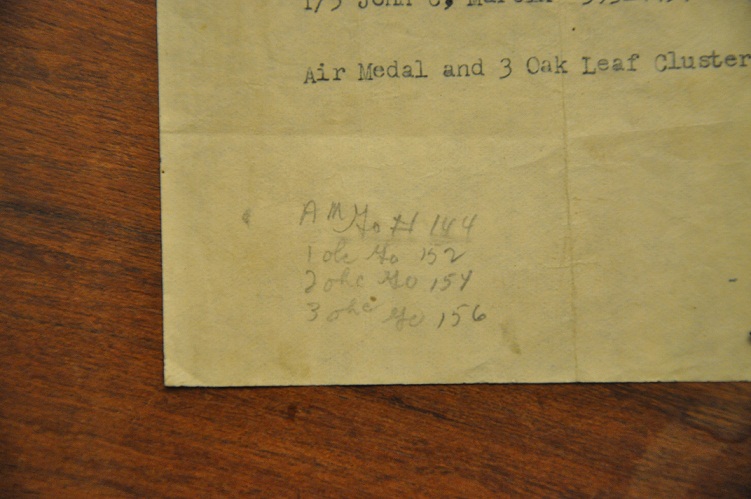 T/5 John C, Martin
Air Medal and 3 Oak Leaf Cluster
AM Go # 144
1 olc Go 152
2 ohc Go 154
3 ohc Go 156